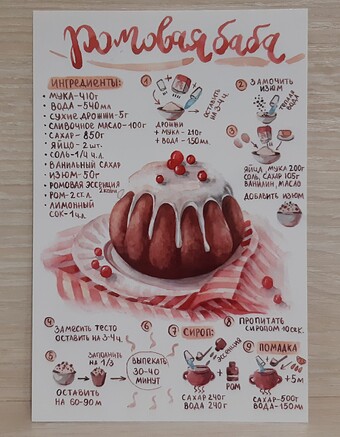 Ромовая баба
ИНГРЕДИЕНТЫ:
• МУКА-410г
• ВОДА-540мл
• СУХИЕ ДРОЖЖИ-5г
• СЛИВОЧНОЕ МАСЛО-100г
• САХАР-850г
• ЯЙЦО-2 шт.
• СОЛЬ-1/4 ч.л.
• ВАНИЛЬНЫЙ САХАР
• ИЗЮМ-50г
• РОМОВАЯ ЭССЕНЦИЯ
• РОМ-2 ст.л.
• ЛИМОННЫЙ
СОК-1 ч.л.
1
ОСТАВИТЬ
НА 3-4ч.
ДРОЖЖИ
+ МУКА-210г
+ ВОДА-150мл
2 ЗАМОЧИТЬ
ИЗЮМ
ТЁПЛАЯ
ВОДА
3
ЯЙЦА МУКА 200г
СОЛЬ, САХАР 105г
ВАНИЛИН, МАСЛО
ДОБАВИТЬ ИЗЮМ
4 ЗАМЕСИТЬ ТЕСТО
ОСТАВИТЬ НА 3-4ч.
5 ЗАПОЛНИТЬ
НА 1/3
ОСТАВИТЬ
НА 60-90 м
6
ВЫПЕКАТЬ
30-40
МИНУТ
7 СИРОП:
ЭССЕНЦИЯ
РОМ
САХАР 240г
ВОДА 240г
8 ПРОПИТАТЬ
СИРОПОМ 10сек.
9 ПОМАДКА
+5м
САХАР-500г
ВОДА-150мл